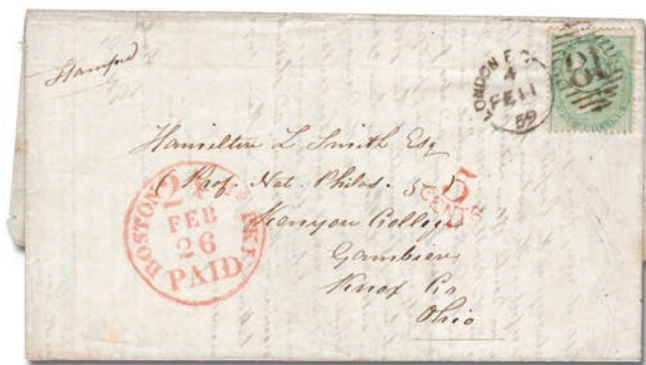 Stamped
LONDON E.C.
4
FE 11
59
18
Hamilton L Smith Esq
Prof. Nat. Philos.
5
CENTS
Kenyon College
Gambier
Knox Co
Ohio
BOSTON
FEB
26
PAID